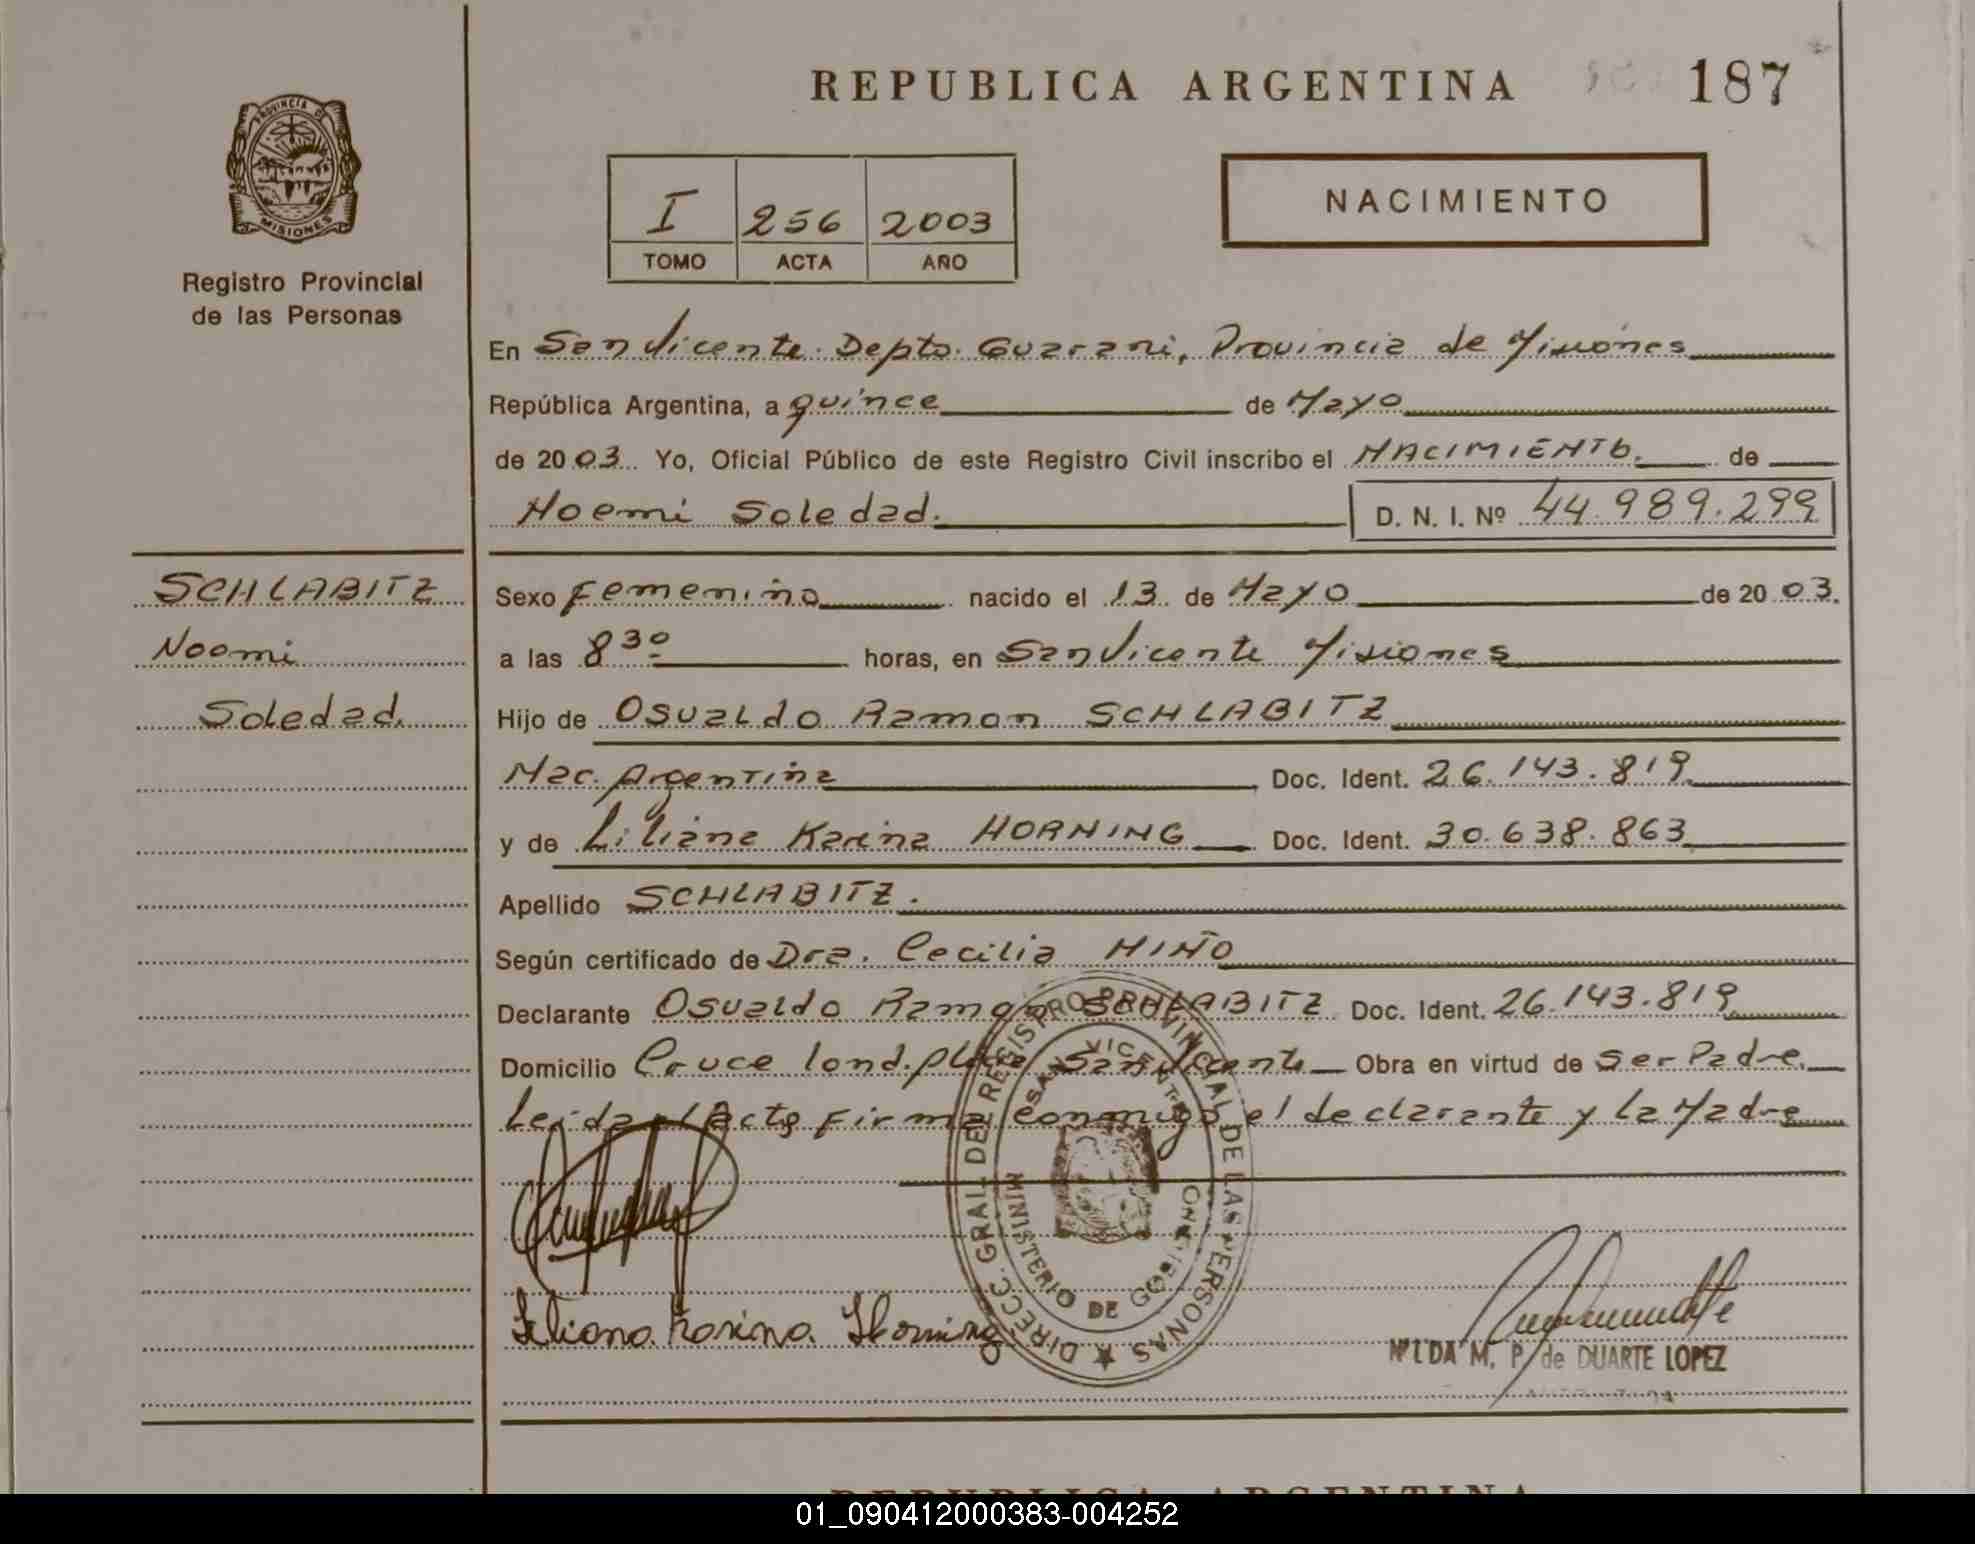 REPUBLICA ARGENTINA 187
PROVINCIA DE
MISIONES
Registro Provincial
de las Personas
I 256 2003
TOMO ACTA AÑO
NACIMIENTO
En San Vicente. Depto. Guarani, Provincia de Misiones
República Argentina, a quince de Mayo
de 2003 Yo, Oficial Público de este Registro Civil inscribo el NACIMIENTO. de
Noemi Soledad. D. N. I. Nº 44.989.299
SCHLABITZ
Noemi
Soledad.
Sexo Femenino nacido el 13 de Mayo de 2003.
a las 8 30 horas, en San Vicente Misiones
Hijo de Osvaldo Ramon SCHLABITZ
Nac. Argentina Doc. Ident. 26.143.819
y de Liliana Karina HORNING Doc. Ident. 30.638.863
Apellido SCHLABITZ.
Según certificado de Dra. Cecilia NIÑO
Declarante Osvaldo Ramon SCHLABITZ Doc. Ident. 26.143.819
Domicilio Cruce Lond. San Vicente Obra en virtud de ser Padre.
Leida el Acta firma conmigo el declarante y la Madre
DIRECC. GRAL. DEL REGISTRO PROVINCIAL DE LAS PERSONAS
SAN VICENTE
MINISTERIO DE GOBIERNO
Liliana Karina Horning
NILDA M. P. de DUARTE LOPEZ
REPUBLICA ARGENTINA
01_090412000383-004252